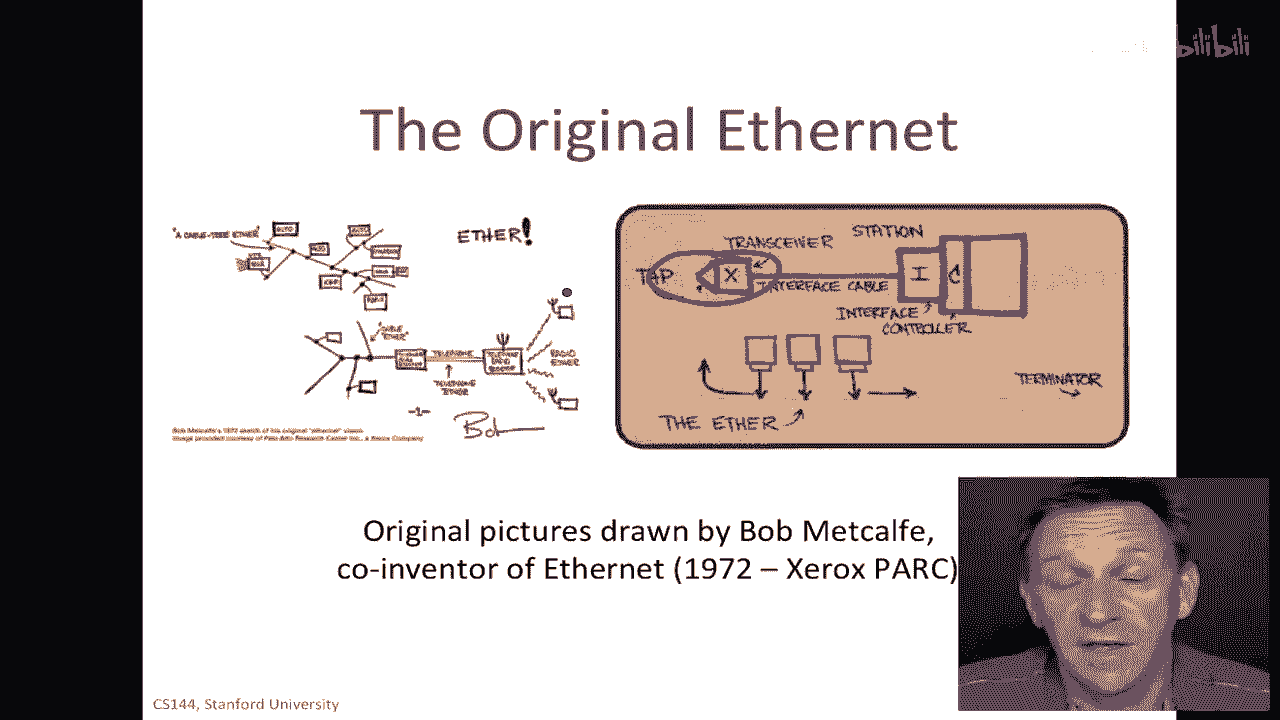 bilibili
The Original Ethernet
"A CABLE-TREE ETHER"
ETHER!
TELEPHONE
RADIO
ETHER
TELEPHONE
ETHER
-1-
Bob
Bob Metcalfe's 1972 sketch of his original "ethernet" vision
Image provided courtesy of Palo Alto Research Center Inc., a Xerox Company
TRANSCEIVER
STATION
TAP
X
I
C
INTERFACE CABLE
INTERFACE
CONTROLLER
TERMINATOR
THE ETHER
Original pictures drawn by Bob Metcalfe,
co-inventor of Ethernet (1972 – Xerox PARC)
CS144, Stanford University